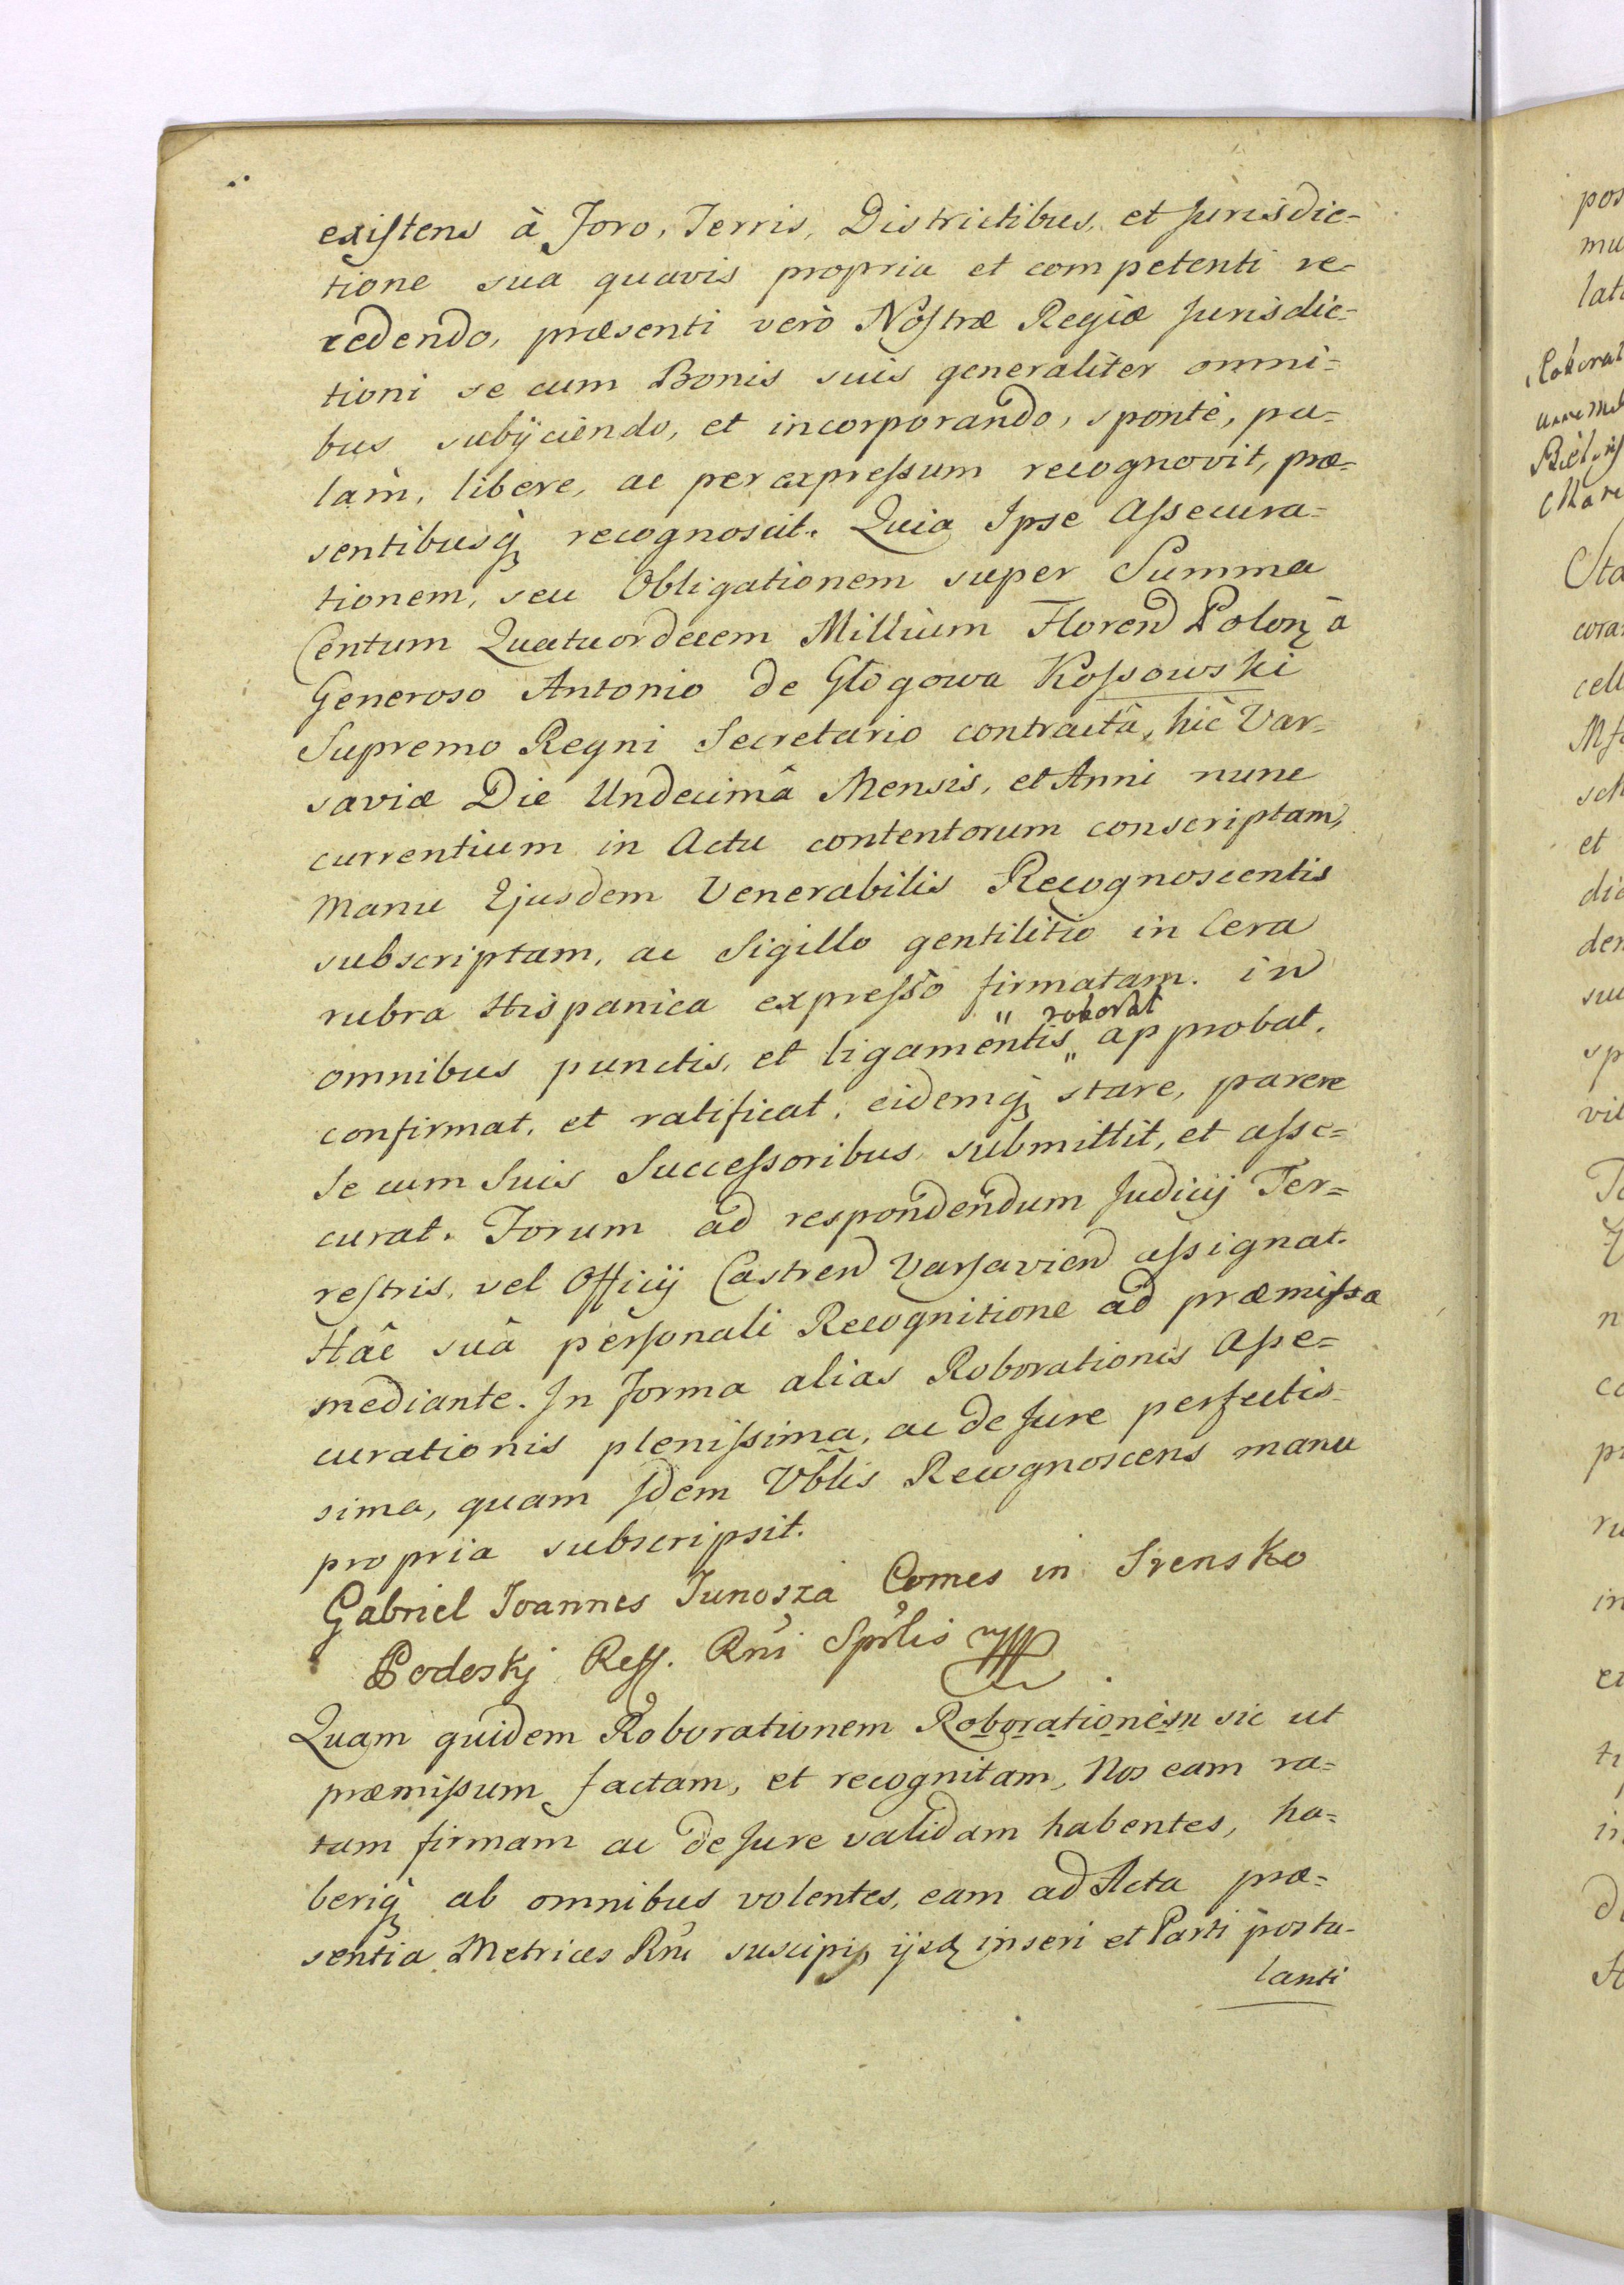 existens à Foro, Terris, Districtibus, et Jurisdic=
tione sua quavis propria et competenti re=
cedendo, præsenti verò Nostræ Regiæ Jurisdic=
tioni se cum Bonis suis generaliter omni=
bus subijciendo, et incorporando, spontè, pa=
làm, libere, ac per expressum recognovit, præ=
sentibusq̀ recognoscit. Quia Ipse Assecura=
tionem, seu Obligationem super Summa
Centum Quatuordecem Millium Floren Polon à
Generoso Antonio de Głogowa Kossowski
Supremo Regni Secretario contractâ, hic Var=
saviæ Die Undecimâ Mensis, et Anni nunc
currentium in Actu contentorum conscriptam,
Manu Ejusdem Venerabilis Recognoscentis
subscriptam, ac Sigillo gentilitio in Cera
rubra Hispanica expresso firmatam. in
omnibus punctis, et ligamentis " roborat " approbat,
confirmat, et ratificat, eidemq̀ stare, parere
Se cum Suis Successoribus submittit, et asse=
curat. Forum ad respondendum Judicij Ter=
restris, vel Officij Castren Varsavien assignat.
Hâc suâ personali Recognitione ad præmissa
mediante. In forma alias Roborationis Asse=
curationis plenissima, ac de Jure perfectis=
sima, quam Idem Vblis Recognoscens manu
propria subscripsit.
Gabriel Joannes Junosza Comes in Srensko
Podoskj Reff. Rni Sprlis
Quam quidem Roborationem Roborationem sic ut
præmissum factam, et recognitam, Nos eam ra=
tam firmam ac de Jure validam habentes, ha=
beriq̀ ab omnibus volentes, eam ad Acta præ=
sentia Metrices Rni suscipi, ijsq inseri et Parti postu=
lanti
pos
mu
lat
Roborat
Sta
cora
cell
sch
et
dic
den
suu
sp
vil
n
co
pr
ru
in